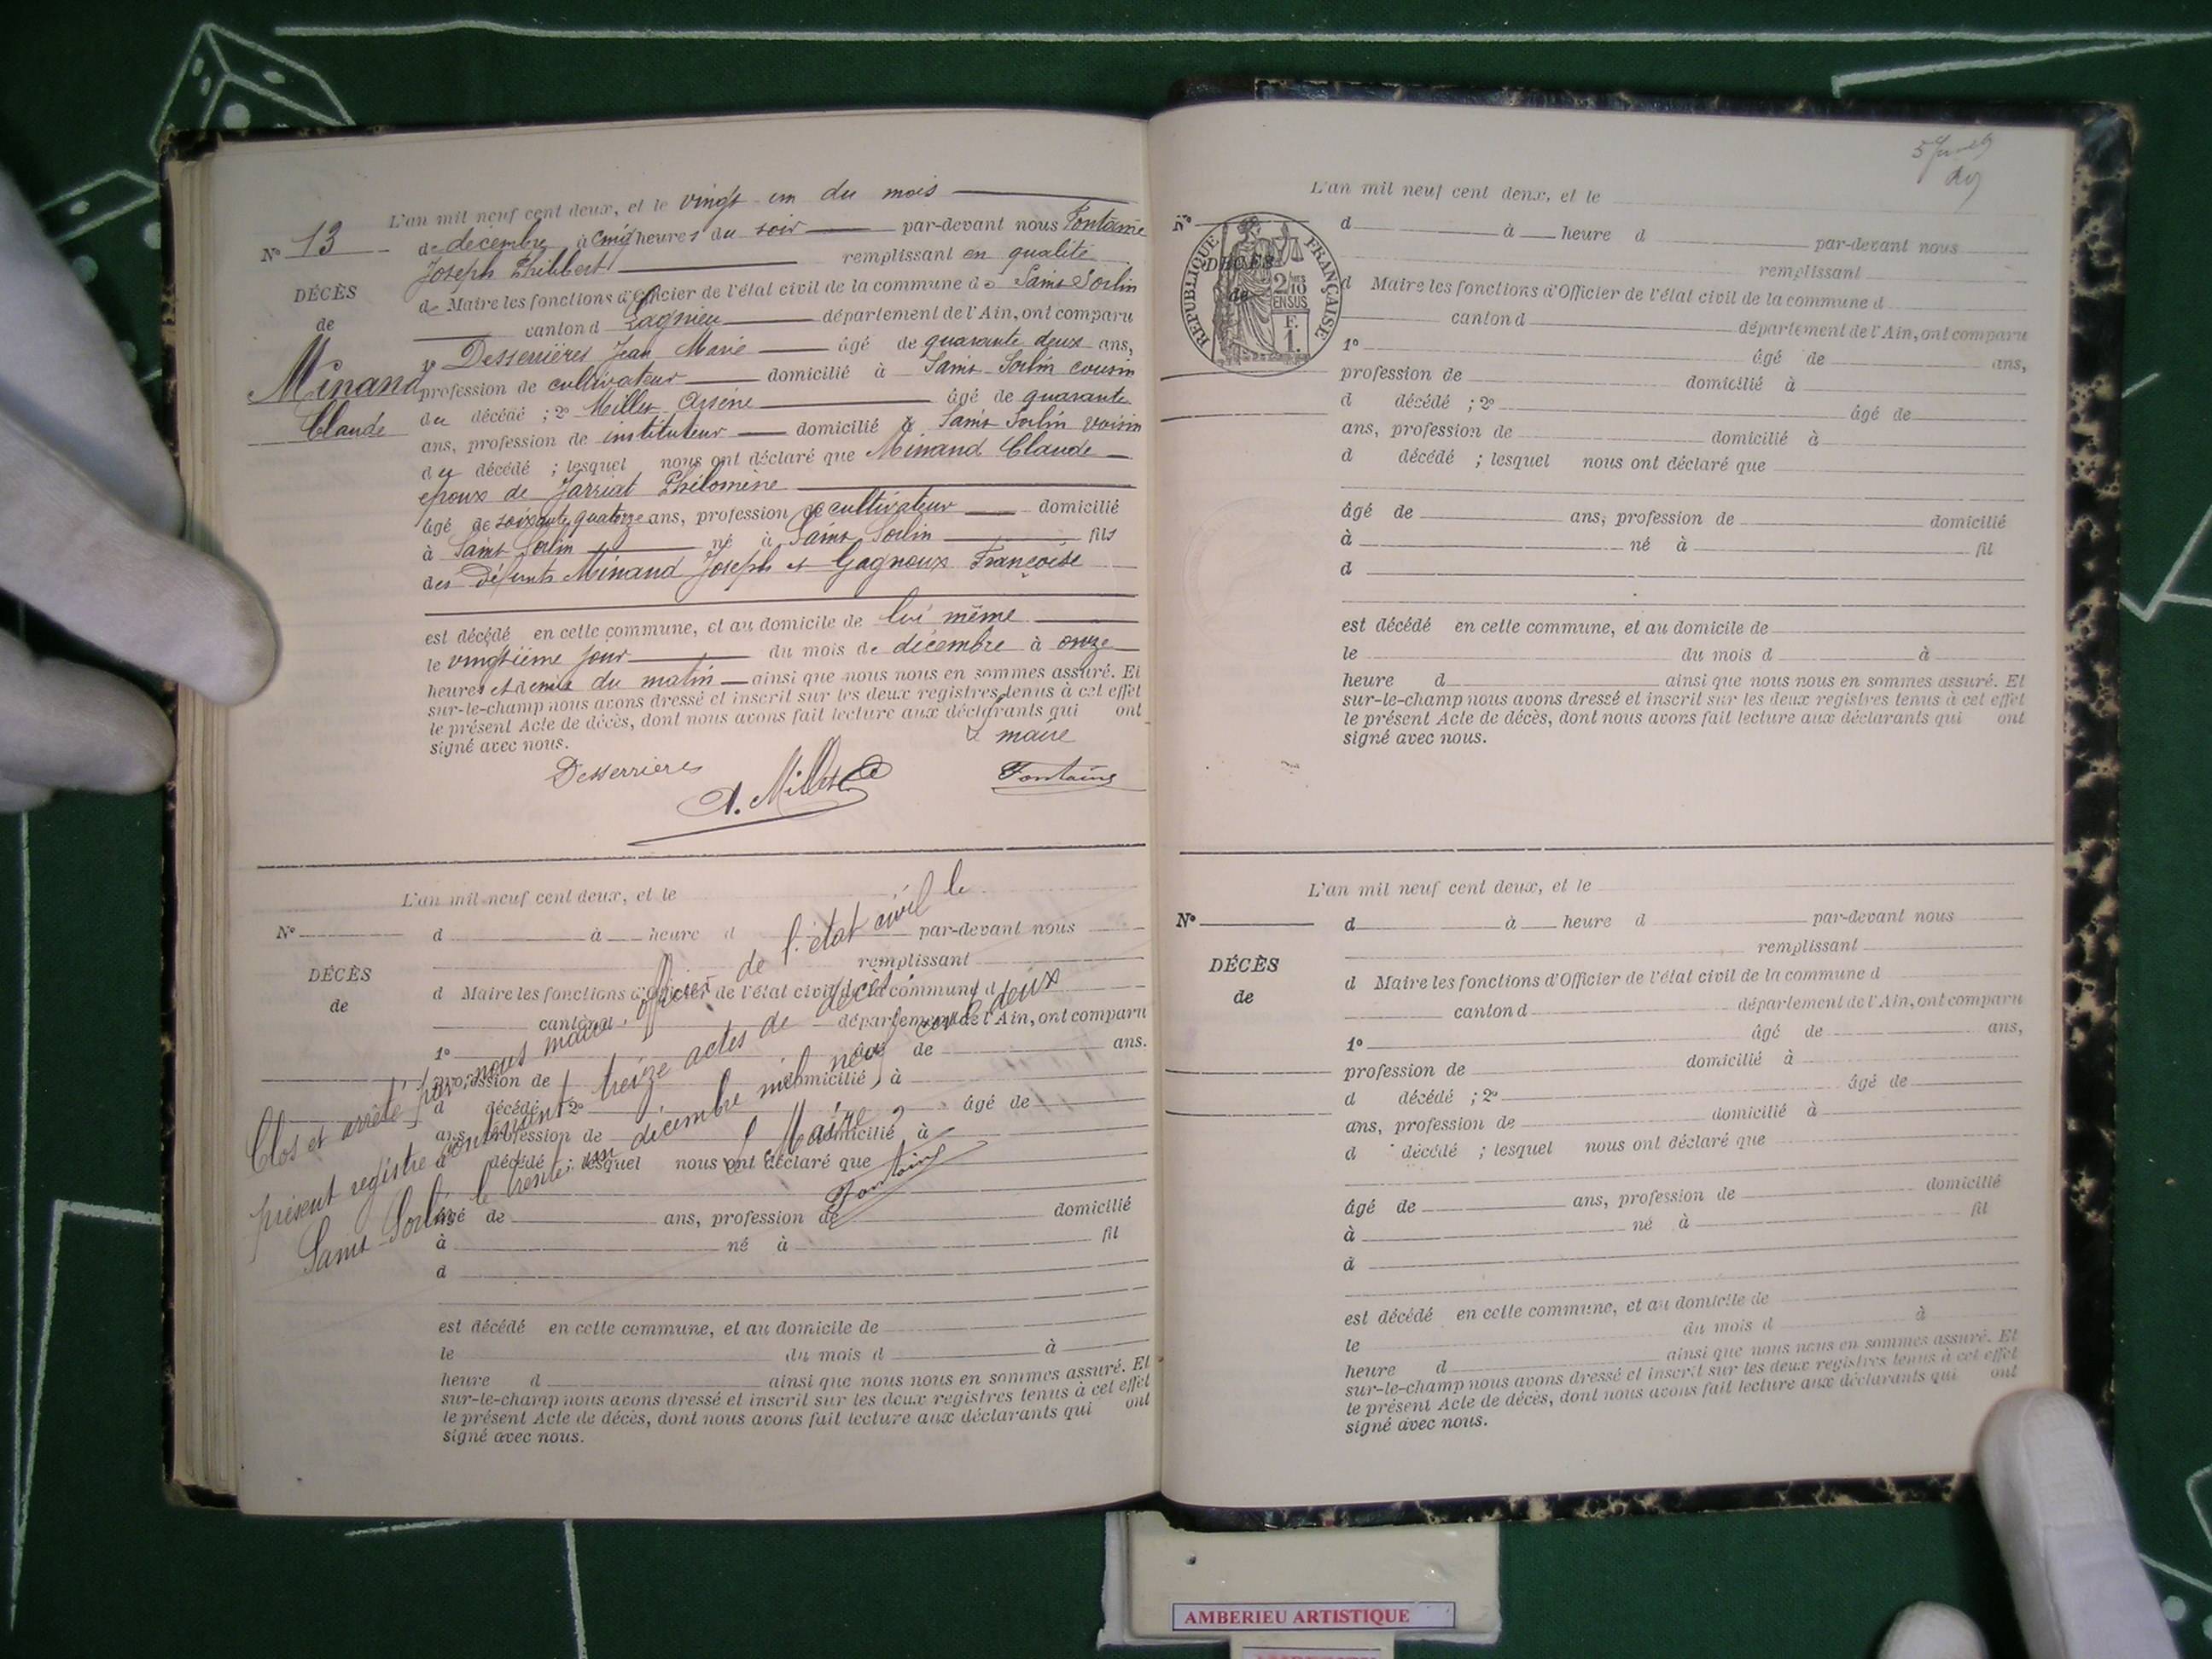 L'an mil neuf cent deux, et le vingt un du mois
N° 13
de décembre à cinq heures du soir par-devant nous Fontaine
Joseph Philibert remplissant en qualité
DÉCÈS
de Maire les fonctions d'Officier de l'état civil de la commune de Saint Sorlin
de
canton d Lagnieu département de l'Ain, ont comparu
1° Desserrières Jean Marie âgé de quarante deux ans,
Minand
profession de cultivateur domicilié à Saint Sorlin cousin
Claude
du décédé ; 2° Millet Arsène âgé de quarante
ans, profession de instituteur domicilié à Saint Sorlin voisin
du décédé ; lesquel nous ont déclaré que Minand Claude
époux de Jarriat Philomène
âgé de soixante quatorze ans, profession de cultivateur domicilié
à Saint Sorlin né à Saint Sorlin fils
des défunts Minand Joseph et Gagnoux Françoise
est décédé en cette commune, et au domicile de lui même
le vingtième jour du mois de décembre à onze
heures et demie du matin ainsi que nous nous en sommes assuré. Et
sur-le-champ nous avons dressé et inscrit sur les deux registres tenus à cet effet
le présent Acte de décès, dont nous avons fait lecture aux déclarants qui ont
signé avec nous.
Le maire
Desserrières
A. Millet
Fontaine
L'an mil neuf cent deux, et le
N°
d à heure d par-devant nous
remplissant
DÉCÈS
d Maire les fonctions d'Officier de l'état civil de la commune d
de
canton d département de l'Ain, ont comparu
1° âgé de ans.
profession de domicilié à
d décédé ; 2° âgé de
ans, profession de domicilié à
d décédé ; lesquel nous ont déclaré que
âgé de ans, profession de domicilié
à né à fil
d
est décédé en cette commune, et au domicile de
le du mois d à
heure d ainsi que nous nous en sommes assuré. Et
sur-le-champ nous avons dressé et inscrit sur les deux registres tenus à cet effet
le présent Acte de décès, dont nous avons fait lecture aux déclarants qui ont
signé avec nous.
Clos et arrêté par nous maire, officier de l'état civil le
présent registre contenant treize actes de décès.
Saint Sorlin le trente un décembre mil neuf cent deux
Le Maire
Fontaine
L'an mil neuf cent deux, et le
N°
d à heure d par-devant nous
remplissant
DÉCÈS
de
RÉPUBLIQUE FRANÇAISE
2/10
EN SUS
F.
1.
d Maire les fonctions d'Officier de l'état civil de la commune d
canton d département de l'Ain, ont comparu
1° âgé de ans,
profession de domicilié à
d décédé ; 2° âgé de
ans, profession de domicilié à
d décédé ; lesquel nous ont déclaré que
âgé de ans, profession de domicilié
à né à fil
d
est décédé en cette commune, et au domicile de
le du mois d à
heure d ainsi que nous nous en sommes assuré. Et
sur-le-champ nous avons dressé et inscrit sur les deux registres tenus à cet effet
le présent Acte de décès, dont nous avons fait lecture aux déclarants qui ont
signé avec nous.
L'an mil neuf cent deux, et le
N°
d à heure d par-devant nous
remplissant
DÉCÈS
d Maire les fonctions d'Officier de l'état civil de la commune d
de
canton d département de l'Ain, ont comparu
1° âgé de ans,
profession de domicilié à
d décédé ; 2° âgé de
ans, profession de domicilié à
d décédé ; lesquel nous ont déclaré que
âgé de ans, profession de domicilié
à né à fil
d
est décédé en cette commune, et au domicile de
le du mois d à
heure d ainsi que nous nous en sommes assuré. Et
sur-le-champ nous avons dressé et inscrit sur les deux registres tenus à cet effet
le présent Acte de décès, dont nous avons fait lecture aux déclarants qui ont
signé avec nous.
AMBERIEU ARTISTIQUE